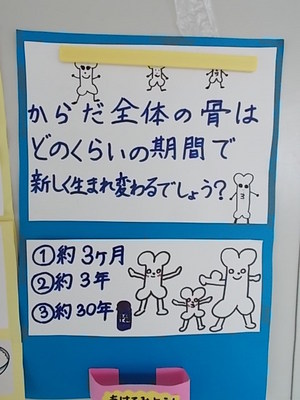 からだ全体の骨は
どのくらいの期間で
新しく生まれ変わるでしょう？
①約3ヶ月
②約3年
③約30年